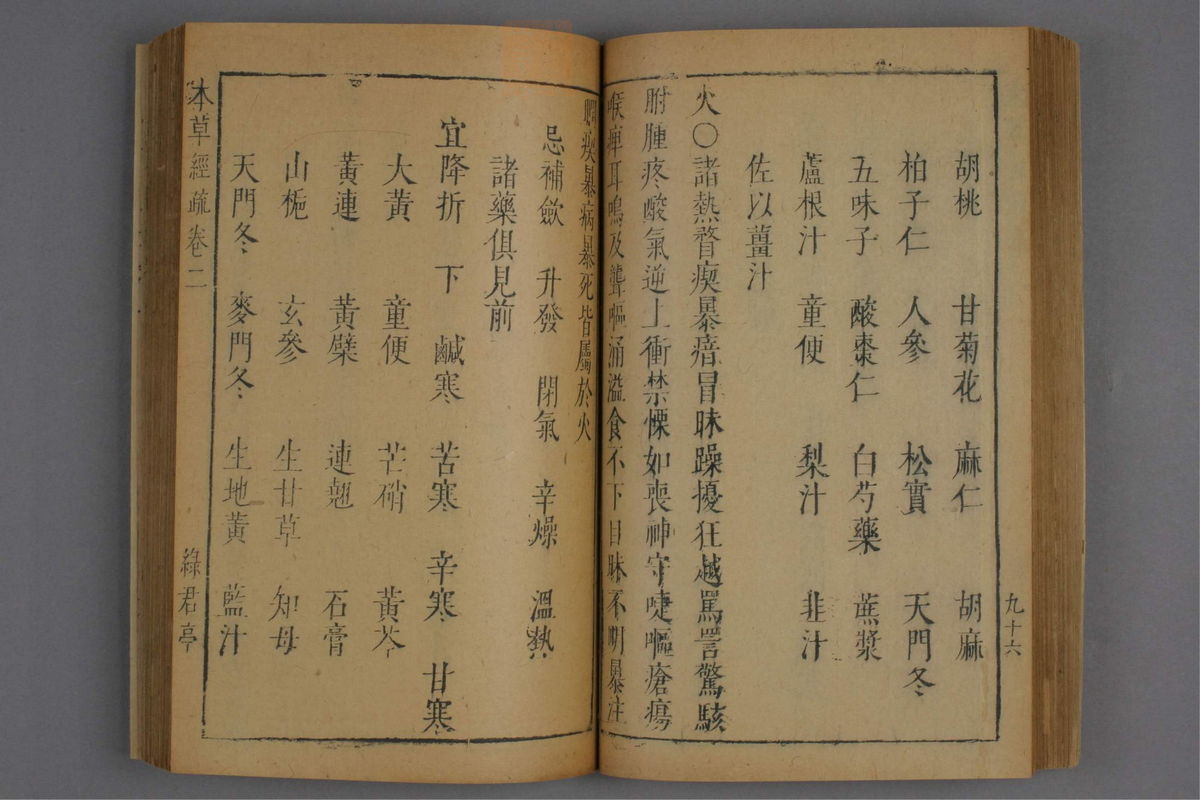 胡桃　甘菊花　麻仁　胡麻
柏子仁　人參　松實　天門冬
五味子　酸棗仁　白芍藥　蔗漿
蘆根汁　童便　梨汁　韭汁
佐以薑汁
火○諸熱瞀瘈暴瘖冒昧躁擾狂越罵詈驚駭
胕腫疼酸氣逆上衝禁慄如喪神守嚏嘔瘡瘍
喉痺耳鳴及聾嘔涌溢食不下目昧不明暴注
瞤瘈暴病暴死皆屬於火
忌補斂　升發　閉氣　辛燥　溫熱
諸藥俱見前
宜降折　下　鹹寒　苦寒　辛寒　甘寒
大黃　童便　芒硝　黃芩
黃連　黃檗　連翹　石膏
山梔　玄參　生甘草　知母
天門冬　麥門冬　生地黃　藍汁
九十六
本草經疏卷二
綠君亭